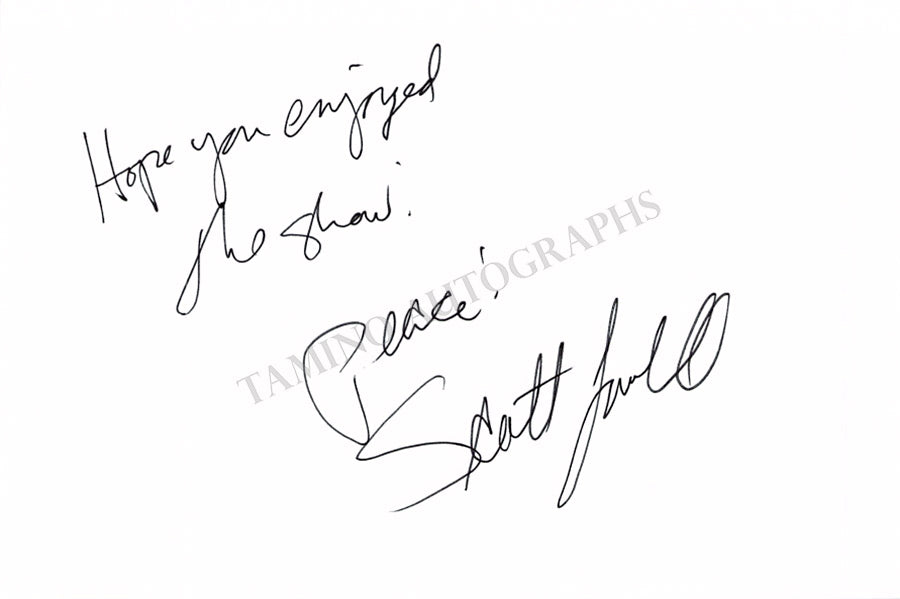 Hope you enjoyed
the show!
Peace!
Scott
TAMINO AUTOGRAPHS